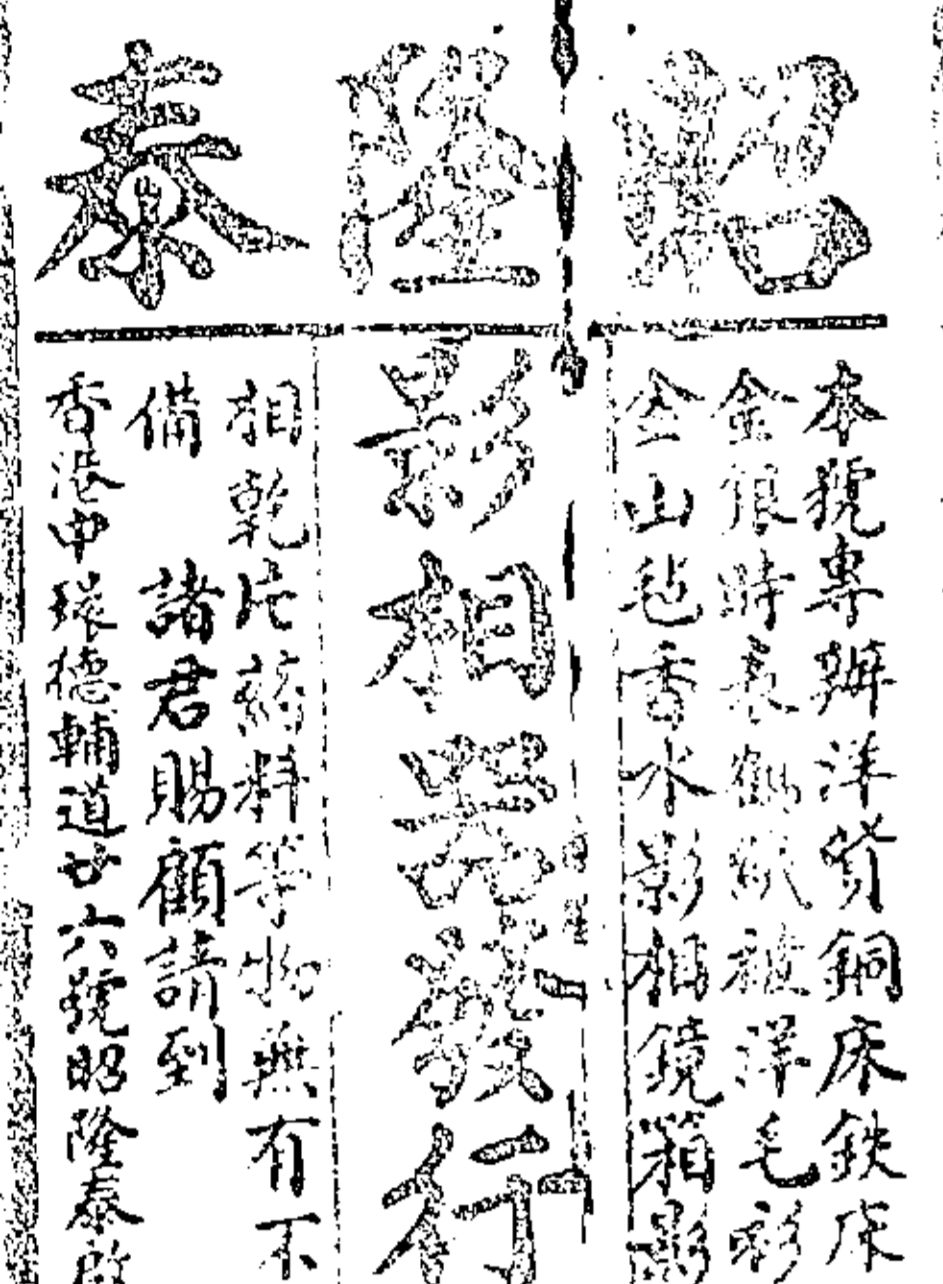 昭隆泰
本號專辦洋貨銅床鉄床
金銀時表鶴絨被洋毛彩
金山毡香水影相鏡箱影
影相器發行
相乾片葯料等物無有不
備 諸君賜顧請到
香港中環德輔道廿六號昭隆泰啟